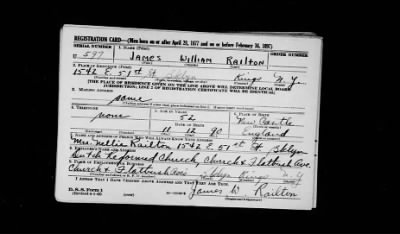 REGISTRATION CARD—(Men born on or after April 28, 1877 and on or before February 16, 1897)
SERIAL NUMBER 1. NAME (Print) ORDER NUMBER
U 597 JAMES WILLIAM RAILTON
2. PLACE OF RESIDENCE (Print)
1542 E. 51 st St. Bklyn Kings N.Y.
[THE PLACE OF RESIDENCE GIVEN ON THE LINE ABOVE WILL DETERMINE LOCAL BOARD
JURISDICTION; LINE 2 OF REGISTRATION CERTIFICATE WILL BE IDENTICAL]
3. MAILING ADDRESS
same
4. TELEPHONE 5. AGE IN YEARS 6. PLACE OF BIRTH
none 52 New Castle
DATE OF BIRTH
11 12 90 England
7. NAME AND ADDRESS OF PERSON WHO WILL ALWAYS KNOW YOUR ADDRESS
Mrs. Nellie Railton 1542 E 51 st St Bklyn
8. EMPLOYER'S NAME AND ADDRESS
Dutch Reformed Church, Church & Flatbush Ave.
9. PLACE OF EMPLOYMENT OR BUSINESS
Church & Flatbush Aves Bklyn Kings N.Y.
I AFFIRM THAT I HAVE VERIFIED ABOVE ANSWERS AND THAT THEY ARE TRUE.
D. S. S. Form 1 James W. Railton